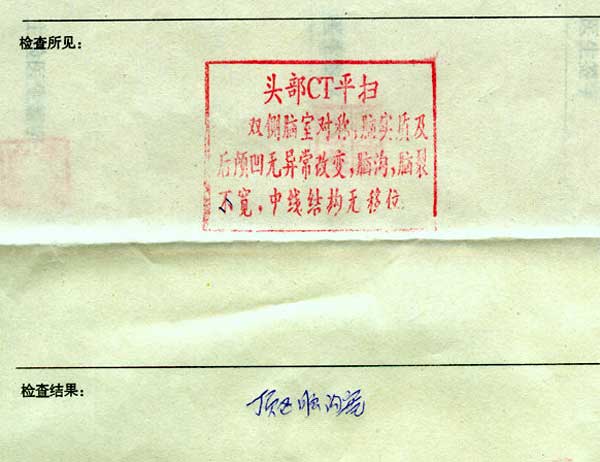 检查所见：
头部CT平扫
双侧脑室对称，脑实质及
后颅凹无异常改变，脑沟，脑裂
不宽，中线结构无移位
检查结果：
顶